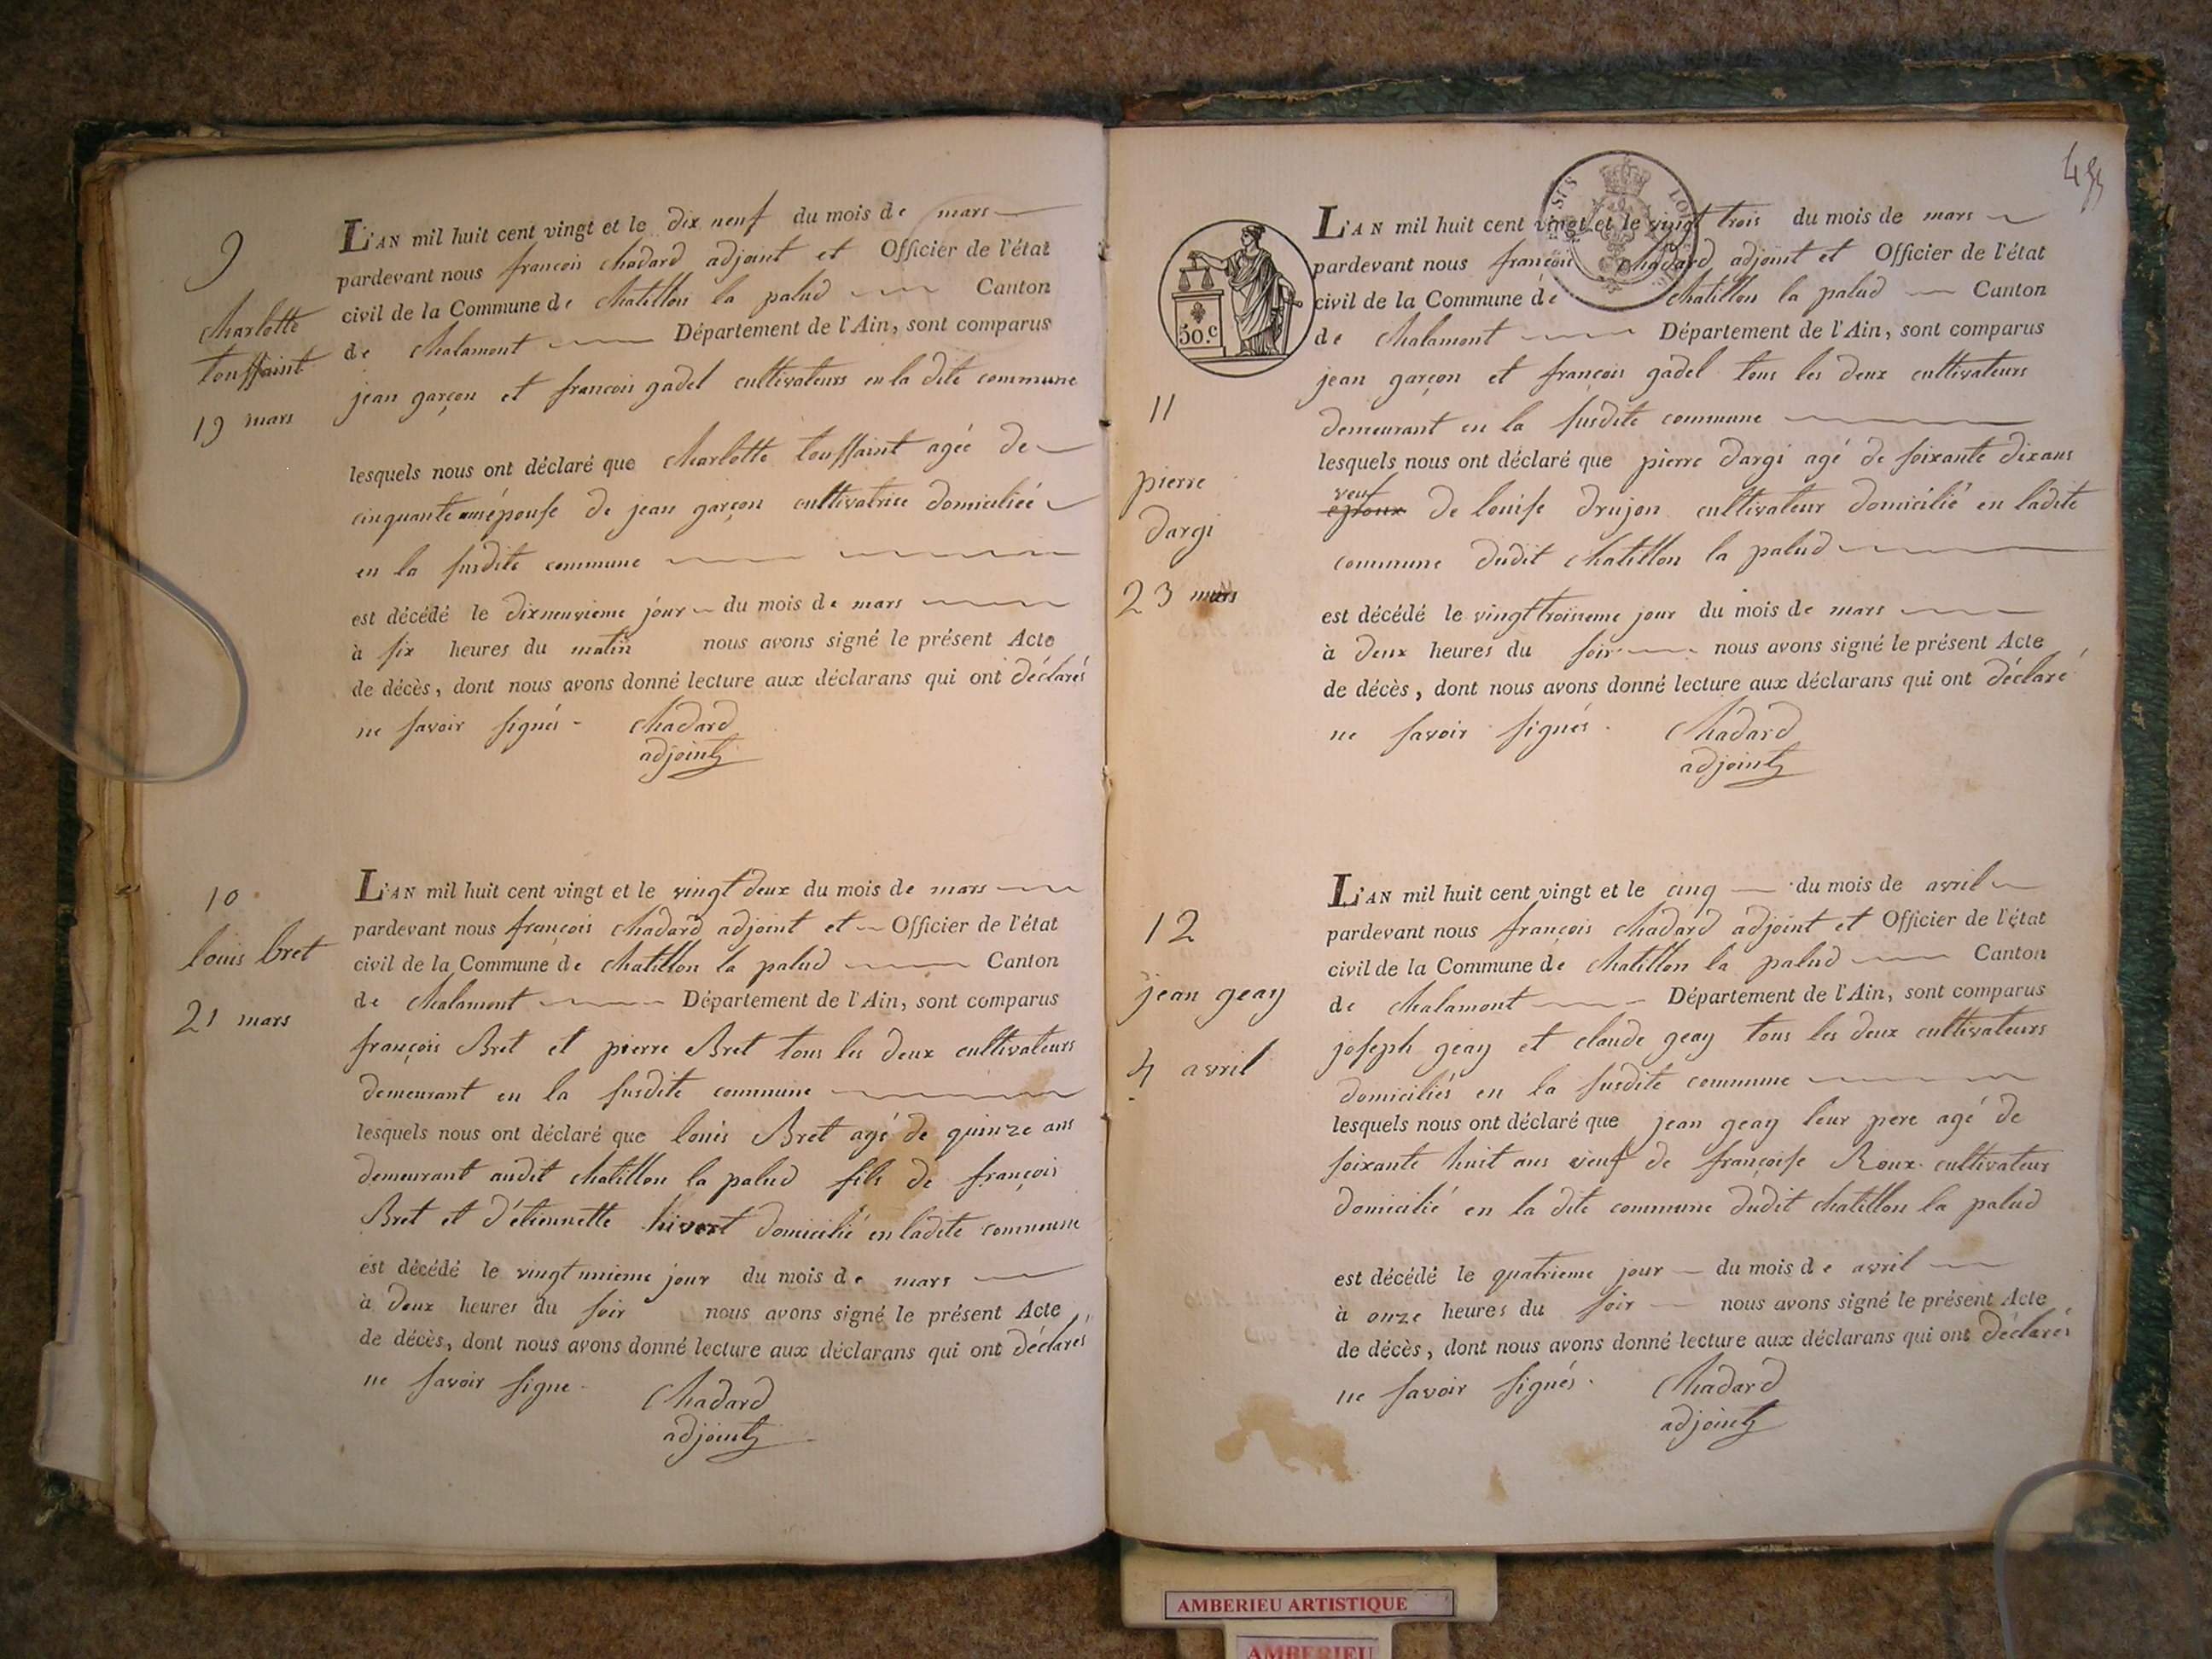 9
Charlotte
toussaint
19 mars
L'AN mil huit cent vingt et le dix neuf du mois de mars
pardevant nous françois Chadard adjoint et Officier de l'état
civil de la Commune de Chatillon la palud Canton
de Chalamont Département de l'Ain, sont comparus
jean garçon et françois gadel cultivateurs en la dite commune
lesquels nous ont déclaré que Charlotte toussaint agée de
cinquante épouse de jean garçon cultivatrice domiciliée
en la susdite commune
est décédé le dixneuvieme jour du mois de mars
à six heures du matin nous avons signé le présent Acte
de décès, dont nous avons donné lecture aux déclarans qui ont déclarés
ne savoir signés - Chadard
adjoint
10
louis bret
21 mars
L'AN mil huit cent vingt et le vingt deux du mois de mars
pardevant nous françois Chadard adjoint et Officier de l'état
civil de la Commune de Chatillon la palud Canton
de Chalamont Département de l'Ain, sont comparus
françois Bret et pierre Bret tous les deux cultivateurs
demeurant en la susdite commune
lesquels nous ont déclaré que louis Bret agé de quinze ans
demeurant audit chatillon la palud fils de françois
Bret et d'étiennette hivert domicilié en ladite commune
est décédé le vingt unieme jour du mois de mars
à deux heures du soir nous avons signé le présent Acte
de décès, dont nous avons donné lecture aux déclarans qui ont déclarés
ne savoir signe - Chadard
adjoint
50.c
11
pierre
dargi
23 mars
L'AN mil huit cent vingt et le vingt trois du mois de mars
pardevant nous françois Chadard adjoint et Officier de l'état
civil de la Commune de Chatillon la palud Canton
de Chalamont Département de l'Ain, sont comparus
jean garçon et françois gadel tous les deux cultivateurs
demeurant en la susdite commune
lesquels nous ont déclaré que pierre dargi agé de soixante dix ans
veuf
epoux de louise drujon cultivateur domicilié en ladite
commune dudit chatillon la palud
est décédé le vingt troisieme jour du mois de mars
à deux heures du soir nous avons signé le présent Acte
de décès, dont nous avons donné lecture aux déclarans qui ont déclaré
ne savoir signés. Chadard
adjoint
12
jean geay
4 avril
L'AN mil huit cent vingt et le cinq du mois de avril
pardevant nous françois Chadard adjoint et Officier de l'état
civil de la Commune de Chatillon la palud Canton
de Chalamont Département de l'Ain, sont comparus
joseph geay et claude geay tous les deux cultivateurs
domiciliés en la susdite commune
lesquels nous ont déclaré que jean geay leur pere agé de
soixante huit ans veuf de françoise Roux cultivateur
domicilié en la dite commune dudit chatillon la palud
est décédé le quatrieme jour du mois de avril
à onze heures du soir nous avons signé le présent Acte
de décès, dont nous avons donné lecture aux déclarans qui ont déclarés
ne savoir signés. Chadard
adjoint
AMBERIEU ARTISTIQUE
AMBERIEU